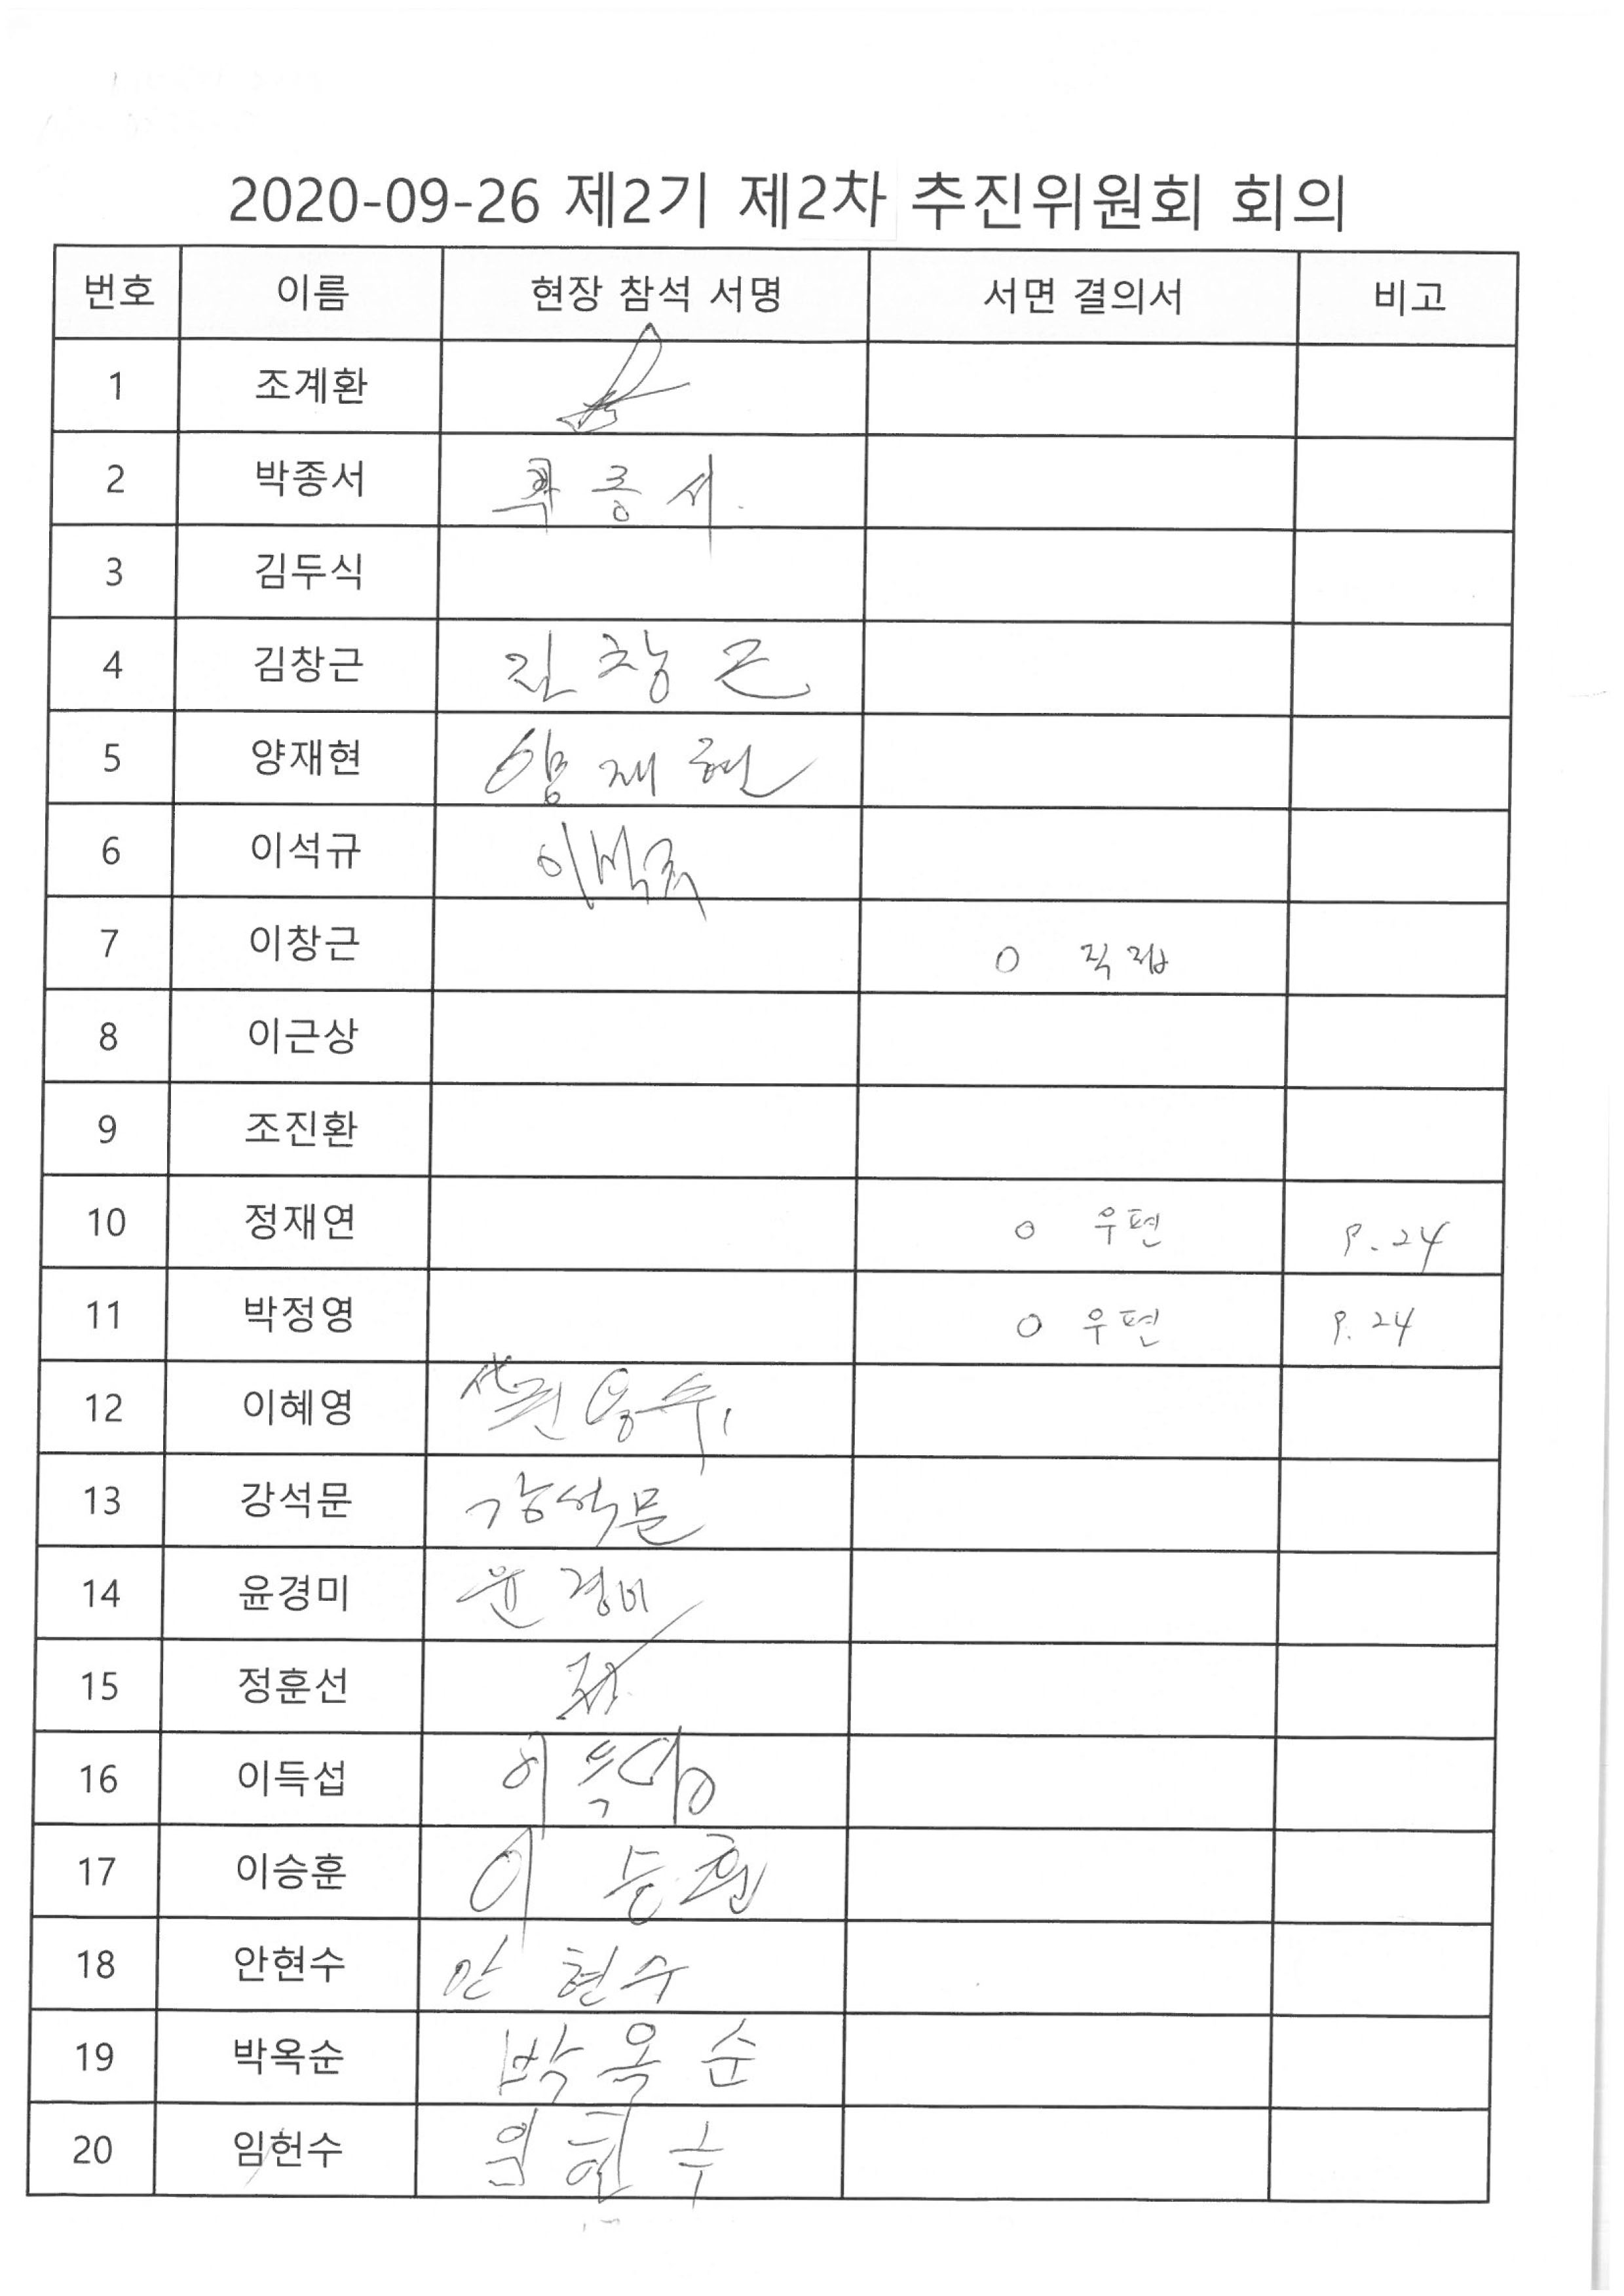 2020-09-26 제2기 제2차 추진위원회 회의
번호 이름 현장 참석 서명 서면 결의서 비고
1 조계환
2 박종서 박종서.
3 김두식
4 김창근 김창근
5 양재현 양재현
6 이석규 이석규
7 이창근 O 직접
8 이근상
9 조진환
10 정재연 O 우편 9.24
11 박정영 O 우편 9.24
12 이혜영
13 강석문 강석문
14 윤경미 윤경미
15 정훈선
16 이득섭 이득섭
17 이승훈 이승훈
18 안현수 안현수
19 박옥순 박옥순
20 임헌수 임헌수